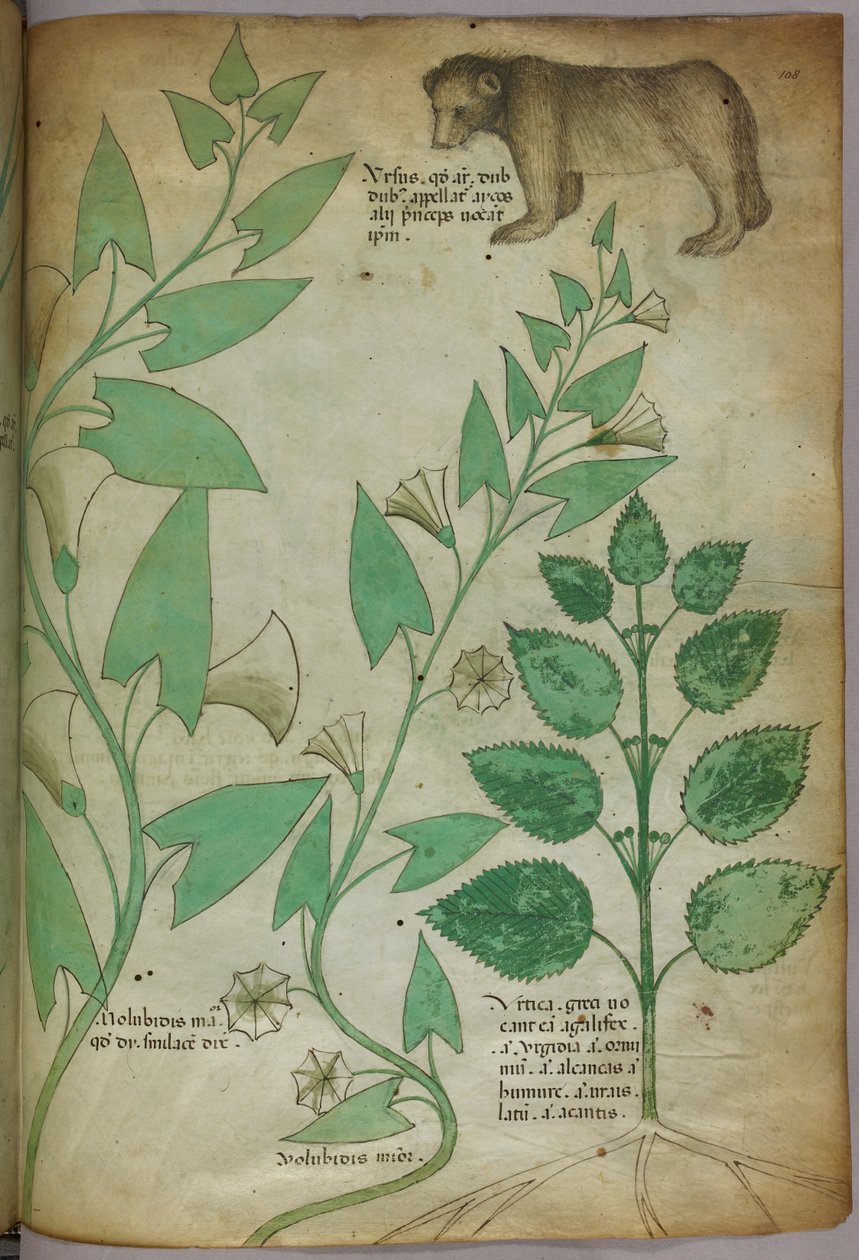 108
Vrsus . qd ar̃. dub
dub̃. appellat᷑ arcos
alij p̃nceps uocãt
ip̃m .
.Volubidis ma.or
qd̃ dr̃. smilacẽ
Volubidis mior .
Vrtica . greci uo
cant eã agalifex .
. a᷒. Vrgidia . a᷒.
a᷒. alcancas a᷒
humure . a᷒. urais .
latũ . a᷒. acantis .